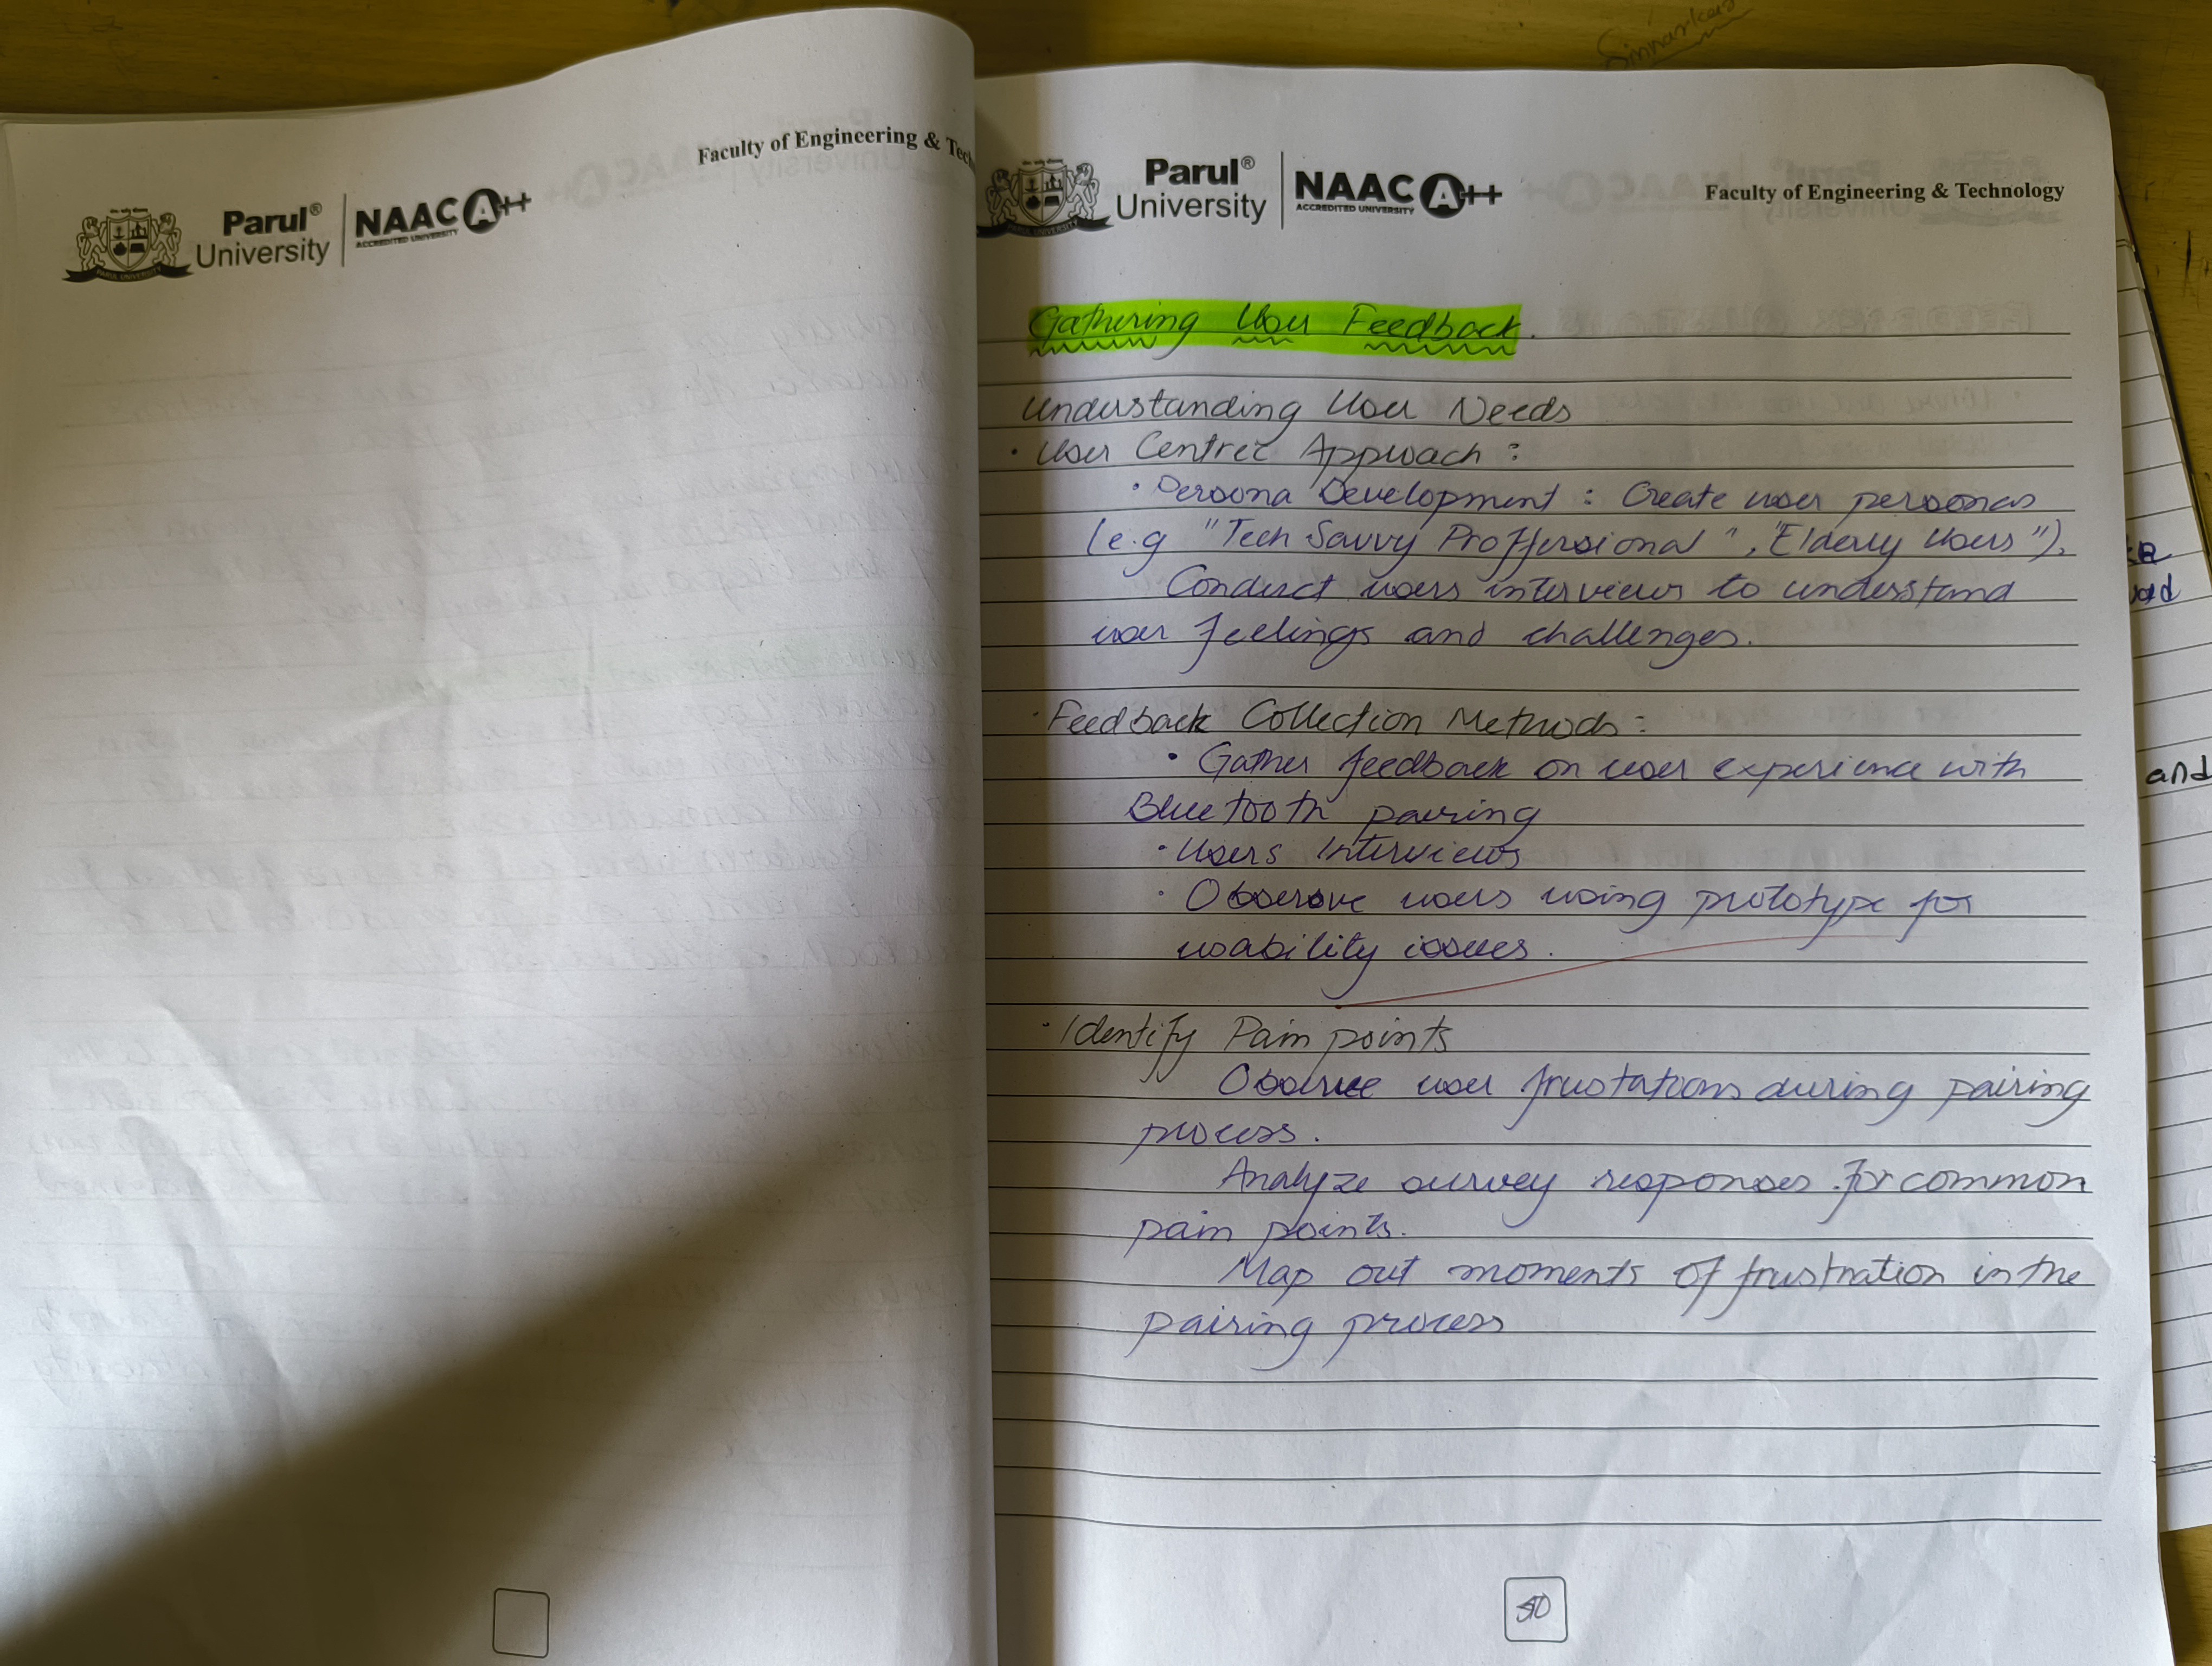 Faculty of Engineering & Tech
Parul®
University
NAAC A++
ACCREDITED UNIVERSITY
PARUL UNIVERSITY
Parul®
University
NAAC A++
ACCREDITED UNIVERSITY
Faculty of Engineering & Technology
Gathering User Feedback.
Understanding User Needs
• User Centric Approach :
• Persona Development : Create user personas
(e.g "Tech Savvy Proffersional", "Elderly Users").
Conduct users interviews to understand
user feelings and challenges.
• Feedback Collection Methods :
• Gather feedback on user experience with
Bluetooth pairing
• Users Interviews
• Observe users using prototype for
usability issues.
• Identify Pain points
Observe user frustations during pairing
process.
Analyze survey responses for common
pain points.
Map out moments of frustration in the
pairing process
and